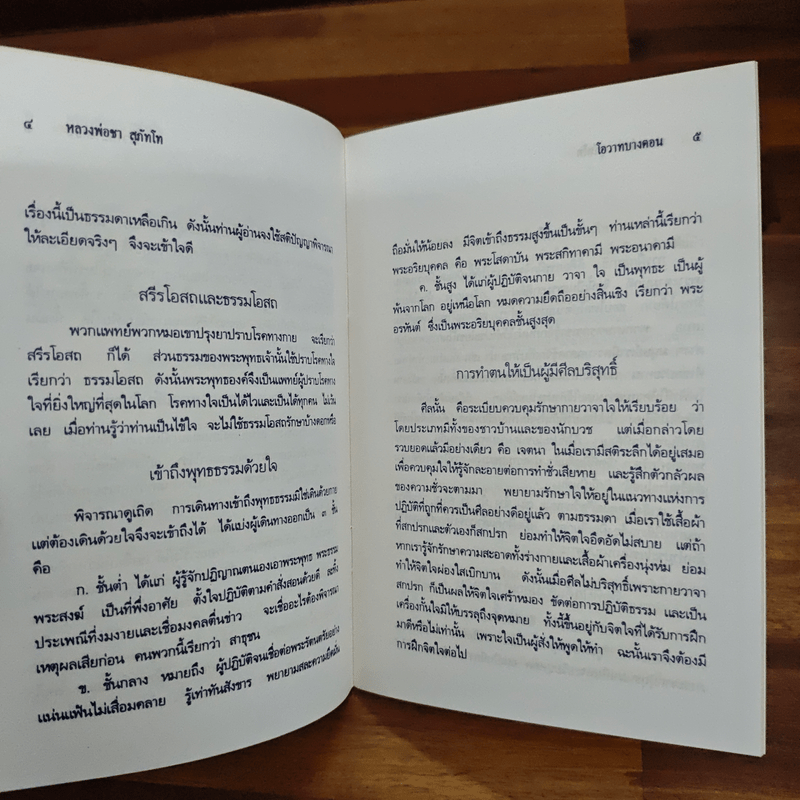 ๔ หลวงพ่อชา สุภัทโท
เรื่องนี้เป็นธรรมดาเหลือเกิน ดังนั้นท่านผู้อ่านจงใช้สติปัญญาพิจารณา
ให้ละเอียดจริงๆ จึงจะเข้าใจดี
สรีรโอสถและธรรมโอสถ
พวกแพทย์พวกหมอเขาปรุงยาปราบโรคทางกาย จะเรียกว่า
สรีรโอสถ ก็ได้ ส่วนธรรมของพระพุทธเจ้านั้นใช้ปราบโรคทางใจ
เรียกว่า ธรรมโอสถ ดังนั้นพระพุทธองค์จึงเป็นแพทย์ผู้ปราบโรคทาง
ใจที่ยิ่งใหญ่ที่สุดในโลก โรคทางใจเป็นได้ไวและเป็นได้ทุกคน ไม่เว้น
เลย เมื่อท่านรู้ว่าท่านเป็นไข้ใจ จะไม่ใช้ธรรมโอสถรักษาบ้างดอกหรือ
เข้าถึงพุทธธรรมด้วยใจ
พิจารณาดูเถิด การเดินทางเข้าถึงพุทธธรรมมิใช่เดินด้วยกาย
แต่ต้องเดินด้วยใจจึงจะเข้าถึงได้ ได้แบ่งผู้เดินทางออกเป็น ๓ ชั้น
คือ
ก. ชั้นต่ำ ได้แก่ ผู้รู้จักปฏิญาณตนเองเอาพระพุทธ พระธรรม
พระสงฆ์ เป็นที่พึ่งอาศัย ตั้งใจปฏิบัติตามคำสั่งสอนด้วยดี ละทิ้ง
ประเพณีที่งมงายและเชื่อมงคลตื่นข่าว จะเชื่ออะไรต้องพิจารณา
เหตุผลเสียก่อน คนพวกนี้เรียกว่า สาธุชน
ข. ชั้นกลาง หมายถึง ผู้ปฏิบัติจนเชื่อต่อพระรัตนตรัยอย่าง
แน่นแฟ้นไม่เสื่อมคลาย รู้เท่าทันสังขาร พยายามสละความยึดมั่น
โอวาทบางตอน ๕
ถือมั่นให้น้อยลง มีจิตเข้าถึงธรรมสูงขึ้นเป็นชั้นๆ ท่านเหล่านี้เรียกว่า
พระอริยบุคคล คือ พระโสดาบัน พระสกิทาคามี พระอนาคามี
ค. ชั้นสูง ได้แก่ผู้ปฏิบัติจนกาย วาจา ใจ เป็นพุทธะ เป็นผู้
พ้นจากโลก อยู่เหนือโลก หมดความยึดถืออย่างสิ้นเชิง เรียกว่า พระ
อรหันต์ ซึ่งเป็นพระอริยบุคคลชั้นสูงสุด
การทำตนให้เป็นผู้มีศีลบริสุทธิ์
ศีลนั้น คือระเบียบควบคุมรักษากายวาจาใจให้เรียบร้อย ว่า
โดยประเภทมีทั้งของชาวบ้านและของนักบวช แต่เมื่อกล่าวโดย
รวบยอดแล้วมีอย่างเดียว คือ เจตนา ในเมื่อเรามีสติระลึกได้อยู่เสมอ
เพื่อควบคุมใจให้รู้จักละอายต่อการทำชั่วเสียหาย และรู้สึกตัวกลัวผล
ของความชั่วจะตามมา พยายามรักษาใจให้อยู่ในแนวทางแห่งการ
ปฏิบัติที่ถูกที่ควรเป็นศีลอย่างดีอยู่แล้ว ตามธรรมดา เมื่อเราใช้เสื้อผ้า
ที่สกปรกและตัวเองก็สกปรก ย่อมทำให้จิตใจอึดอัดไม่สบาย แต่ถ้า
หากเรารู้จักรักษาความสะอาดทั้งร่างกายและเสื้อผ้าเครื่องนุ่งห่ม ย่อม
ทำให้จิตใจผ่องใสเบิกบาน ดังนั้นเมื่อศีลไม่บริสุทธิ์เพราะกายวาจา
สกปรก ก็เป็นผลให้จิตใจเศร้าหมอง ขัดต่อการปฏิบัติธรรม และเป็น
เครื่องกั้นใจมิให้บรรลุถึงจุดหมาย ทั้งนี้ขึ้นอยู่กับจิตใจที่ได้รับการฝึก
มาดีหรือไม่เท่านั้น เพราะใจเป็นผู้สั่งให้พูดให้ทำ ฉะนั้นเราจึงต้องมี
การฝึกจิตใจต่อไป